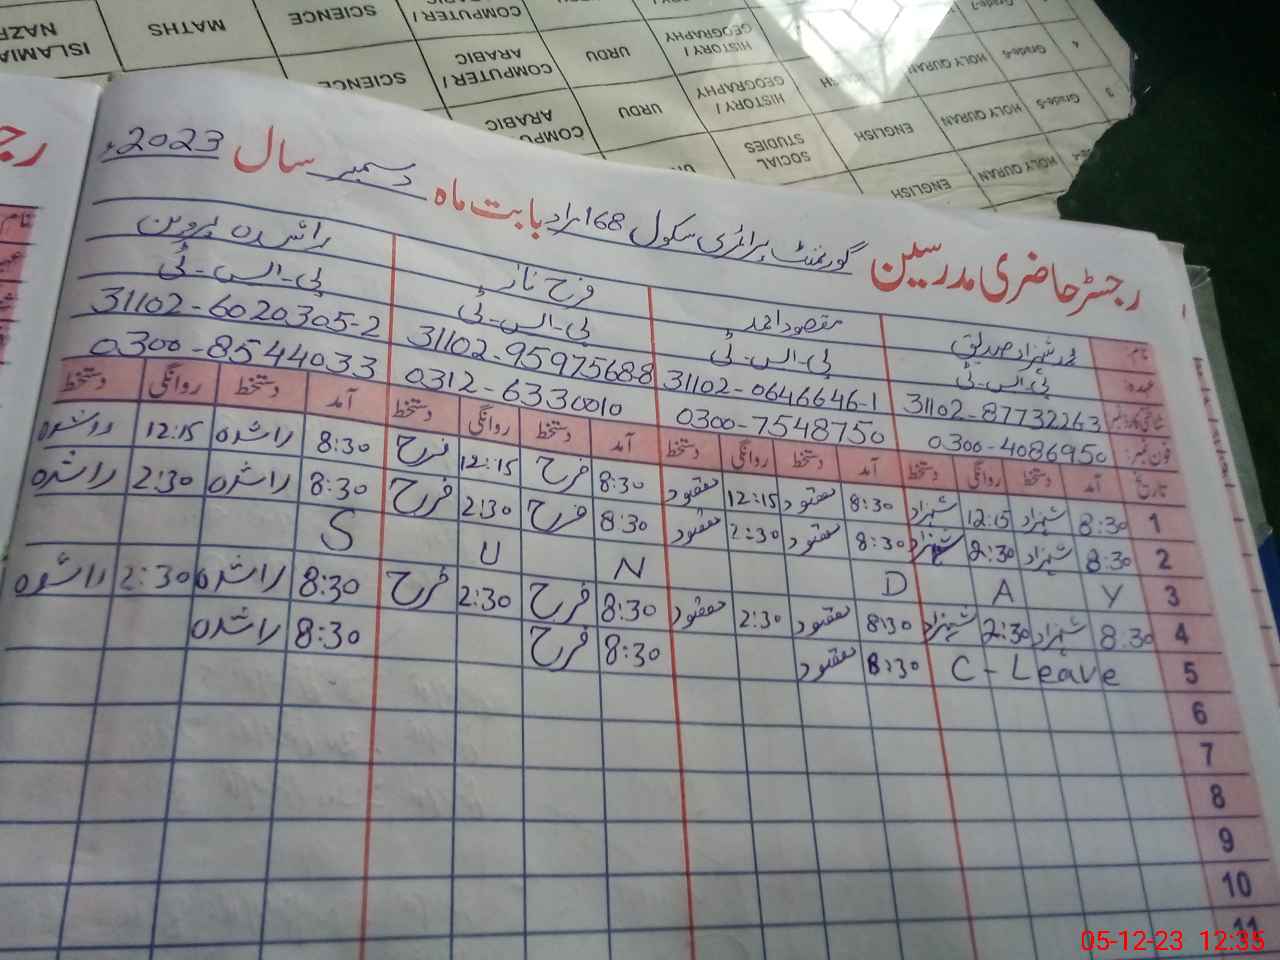 رجسٹر حاضری مدرسین گورنمنٹ پرائمری سکول 168 مراد بابت ماہ دسمبر سال 2023ء
نام محمد شہزاد صدیق مقصود احمد فرح ناز راشدہ پروین
عہدہ: پی۔ایس۔ٹی پی۔ایس۔ٹی پی۔ایس۔ٹی پی۔ایس۔ٹی
شناختی کارڈ نمبر 31102-87732263 31102-0646646-1 31102-9597568-8 31102-6020305-2
فون نمبر: 0300-4086950 0300-7548750 0312-6330010 0300-8544033
تاریخ آمد دستخط روانگی دستخط آمد دستخط روانگی دستخط آمد دستخط روانگی دستخط آمد دستخط روانگی دستخط
1 8:30 شہزاد 12:15 شہزاد 8:30 مقصود 12:15 مقصود 8:30 فرح 12:15 فرح 8:30 راشدہ 12:15 راشدہ
2 8:30 شہزاد 2:30 شہزاد 8:30 مقصود 2:30 مقصود 8:30 فرح 2:30 فرح 8:30 راشدہ 2:30 راشدہ
3 S U N D A Y
4 8:30 شہزاد 2:30 شہزاد 8:30 مقصود 2:30 مقصود 8:30 فرح 2:30 فرح 8:30 راشدہ 2:30 راشدہ
5 C-Leave 8:30 مقصود 8:30 فرح 8:30 راشدہ
6
7
8
9
10
11
ISLAMIA NAZR MATHS SCIENCE COMPUTER / ARABIC URDU HISTORY / GEOGRAPHY HOLY QURAN Grade-7
SCIENCE COMPUTER / ARABIC URDU HISTORY / GEOGRAPHY HOLY QURAN Grade-6 4
ARABIC URDU SOCIAL STUDIES ENGLISH HOLY QURAN Grade-5 3
ENGLISH HOLY QURAN
05-12-23 12:35